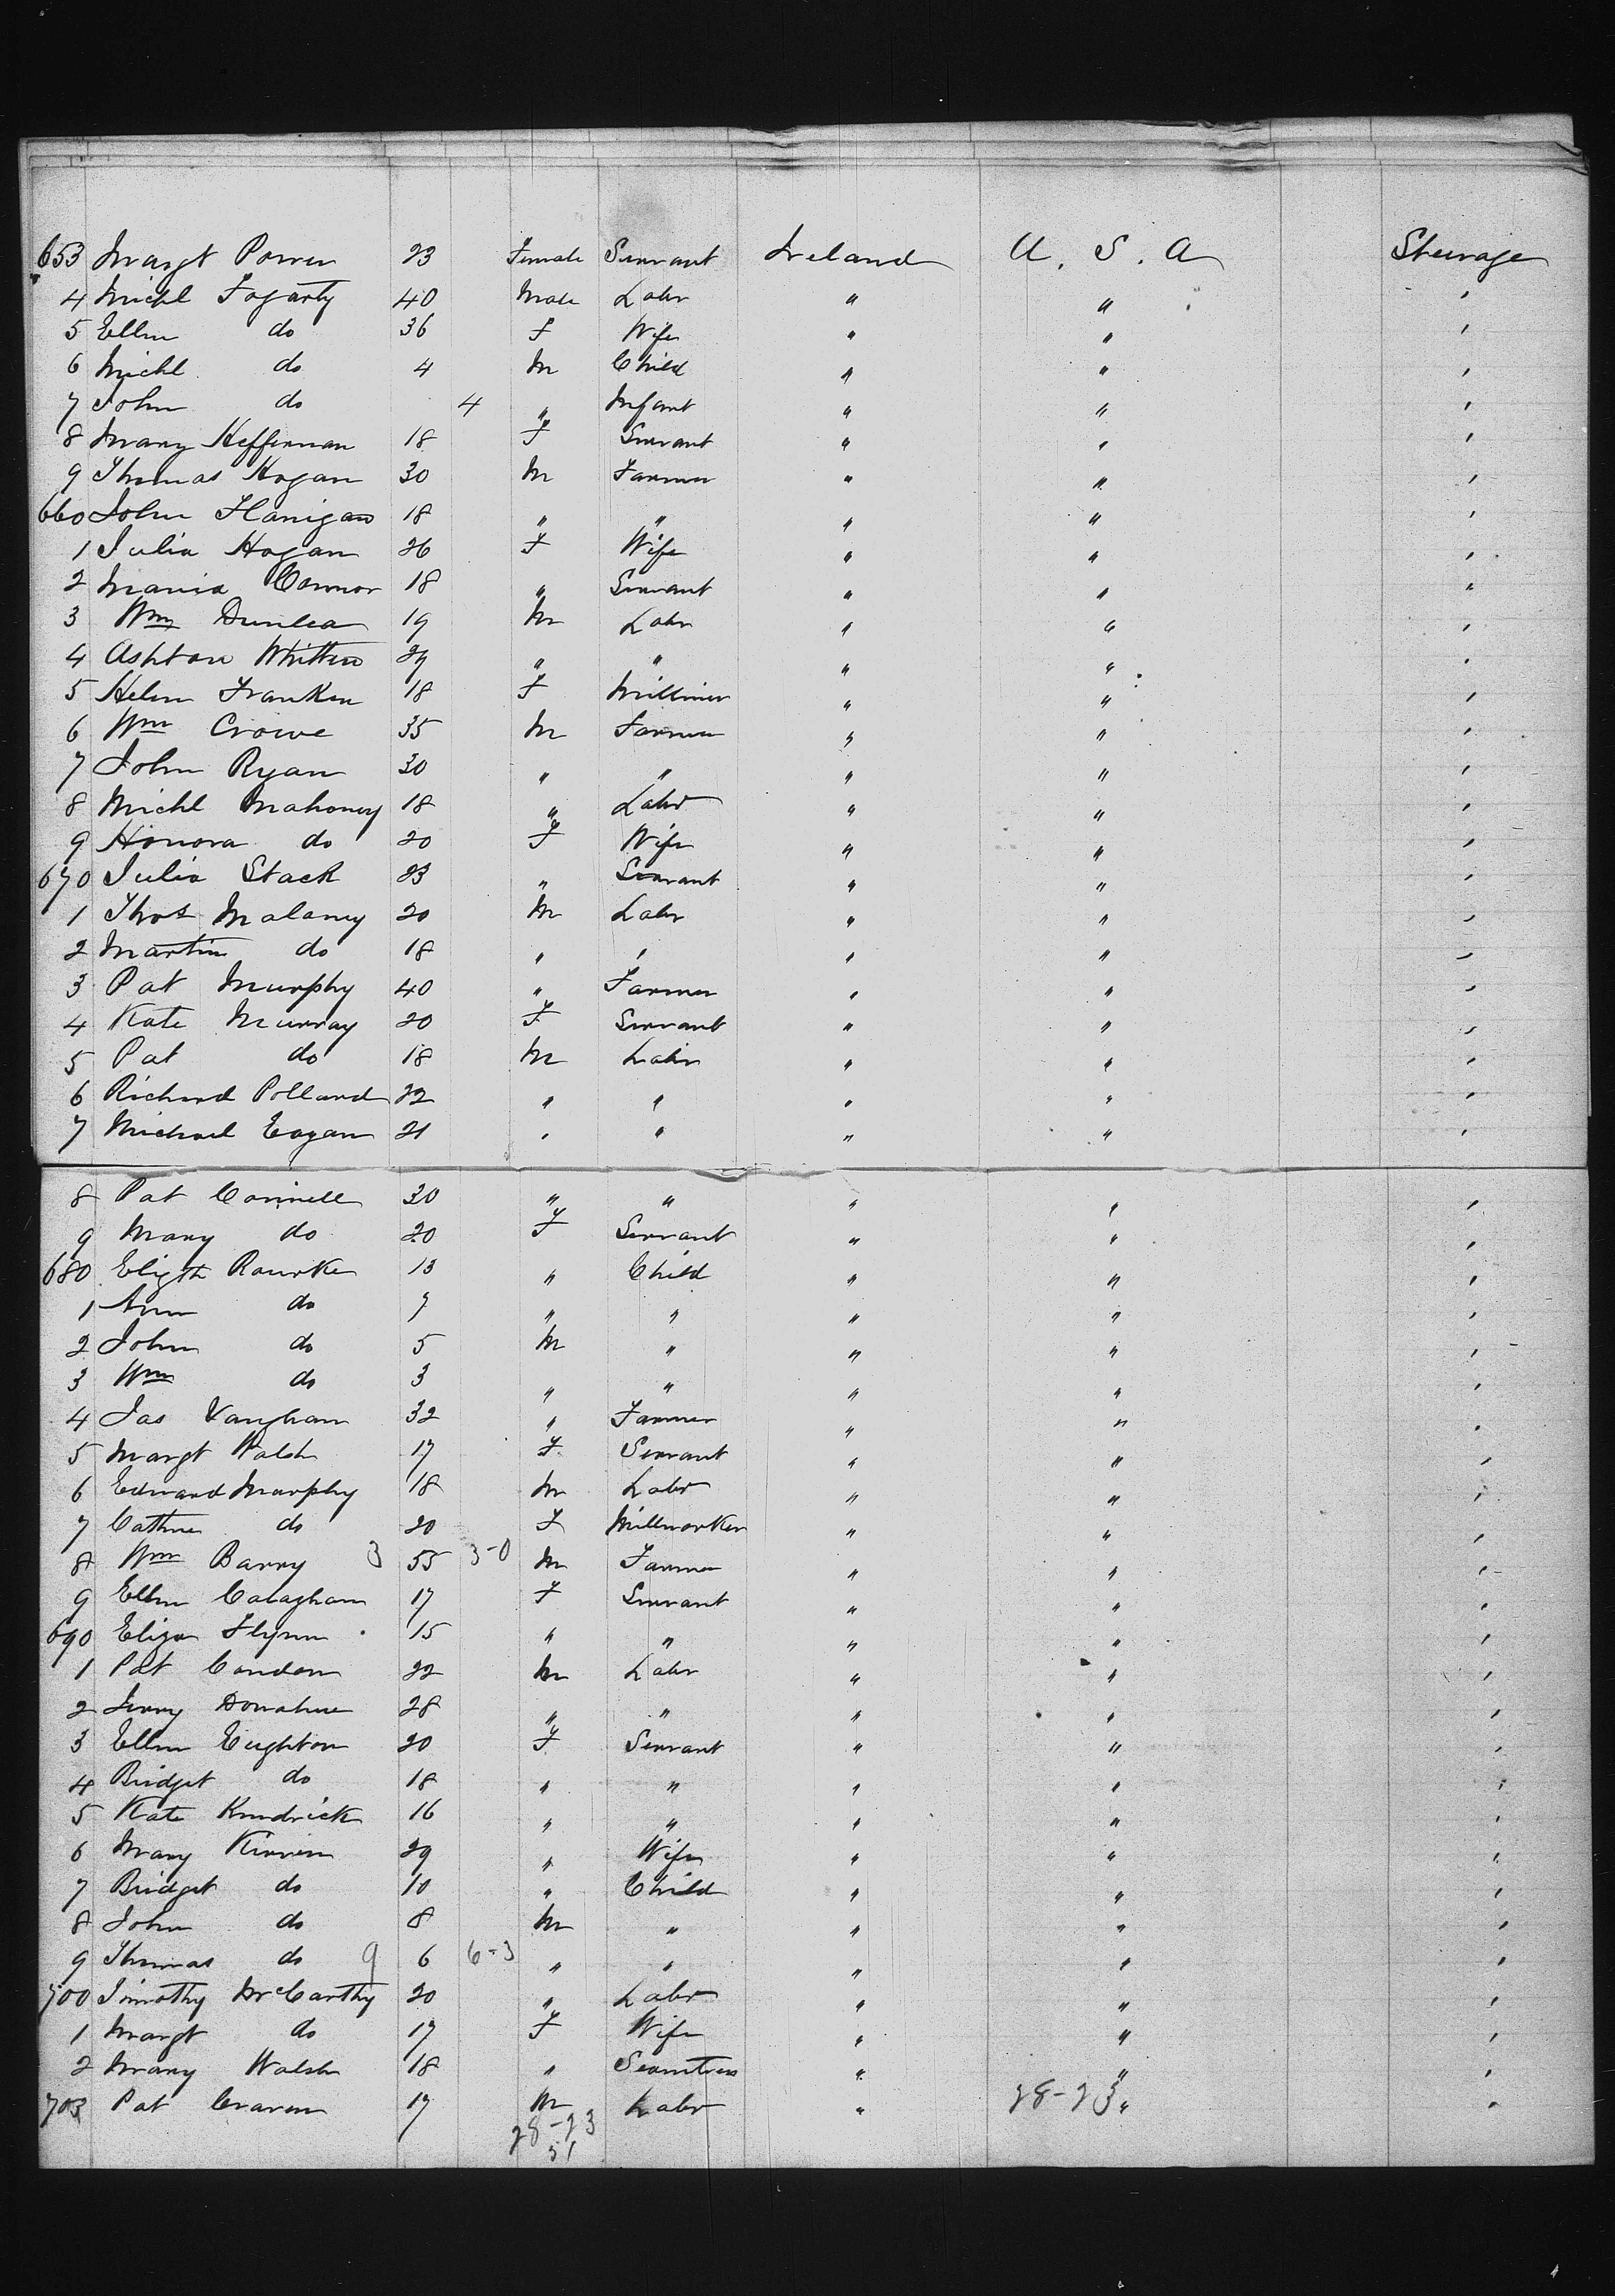 653 Margt Power 23 Female Servant Ireland U. S. A Steerage
4 Michl Fogarty 40 Male Labr " " "
5 Ellen do 36 F Wife " " "
6 Michl do 4 M Child " " "
7 John do 4 " Infant " " "
8 Mary Heffernan 18 F Servant " " "
9 Thomas Hogan 30 M Farmer " " "
660 John Flanigan 18 " " " " "
1 Julia Hogan 26 F Wife " " "
2 Maria Connor 18 " Servant " " "
3 Wm Dunlea 19 M Labr " " "
4 Ashton Whitten 29 " " " " "
5 Helen Franken 18 F Milliner " " "
6 Wm Crowe 35 M Farmer " " "
7 John Ryan 30 " " " " "
8 Michl Mahoney 18 " Labr " " "
9 Honora do 20 F Wife " " "
670 Julia Stack 23 " Servant " " "
1 Thos Malaney 20 M Labr " " "
2 Martin do 18 " " " " "
3 Pat Murphy 40 " Farmer " " "
4 Kate Murray 20 F Servant " " "
5 Pat do 18 M Labr " " "
6 Richard Pollard 22 " " " " "
7 Michael Eagan 21 " " " " "
8 Pat Connell 30 " " " " "
9 Mary do 20 F Servant " " "
680 Eligth Rourke 13 " Child " " "
1 Ann do 7 " " " " "
2 John do 5 M " " " "
3 Wm do 3 " " " " "
4 Jas Vaughan 32 " Farmer " " "
5 Margt Walsh 17 F Servant " " "
6 Edward Murphy 18 M Labr " " "
7 Cathne do 20 F Millworker " " "
8 Wm Barry 3 55 3-0 M Farmer " " "
9 Ellen Calaghan 17 F Servant " " "
690 Eliza Flynn 15 " " " " "
1 Pat Condon 22 M Labr " " "
2 Jerry Donahue 28 " " " " "
3 Ellen Eughton 20 F Servant " " "
4 Bridget do 18 " " " " "
5 Kate Kendrick 16 " " " " "
6 Mary Kirvin 29 " Wife " " "
7 Bridget do 10 " Child " " "
8 John do 8 M " " " "
9 Thomas do 9 6 6-3 " " " " "
700 Timothy McCarthy 20 " Labr " " "
1 Margt do 17 F Wife " " "
2 Mary Walsh 18 " Seamtress " " "
703 Pat Craven 17 M Labr " 28-23 " "
28-23
51